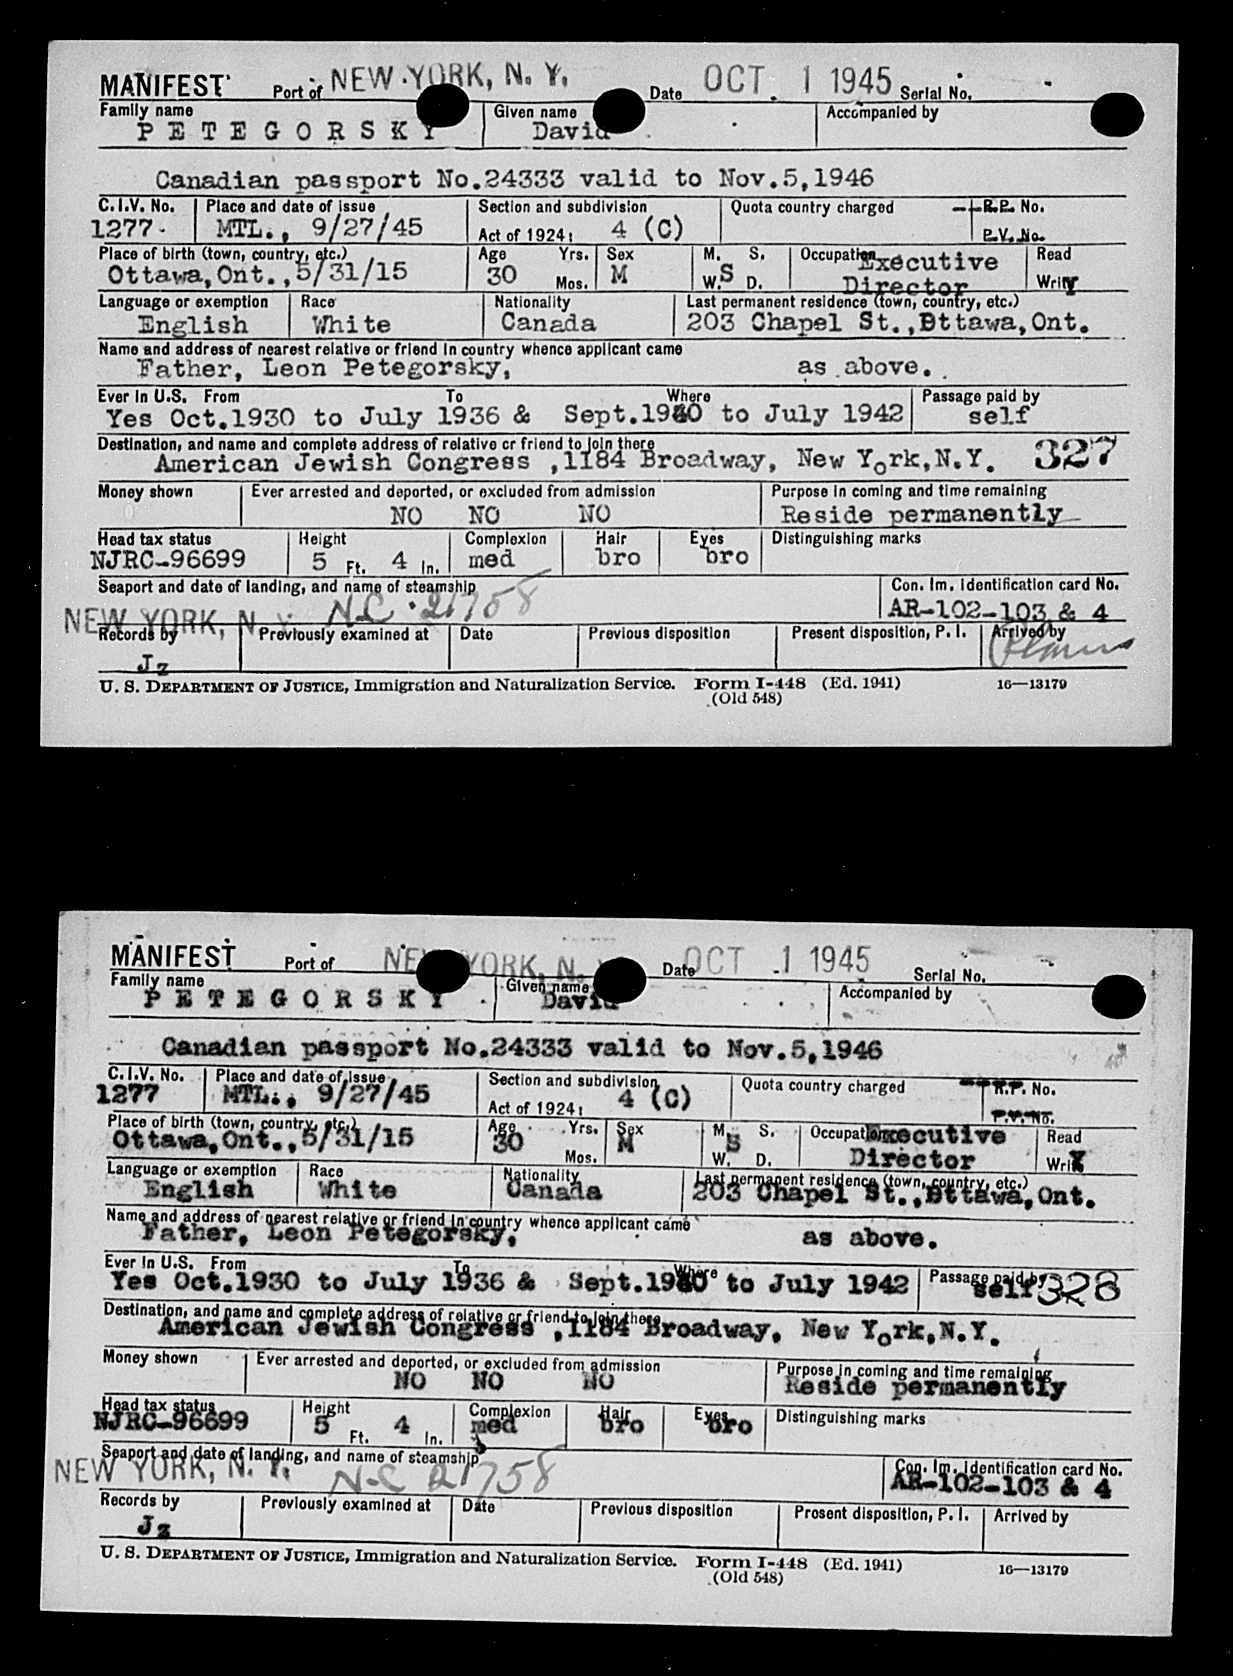 MANIFEST Port of NEW YORK, N. Y. Date OCT 1 1945 Serial No.
Family name Given name Accompanied by
PETEGORSKY David
Canadian passport No.24333 valid to Nov.5,1946
C.I.V. No. Place and date of issue Section and subdivision Quota country charged R.P. No.
1277 MTL., 9/27/45 Act of 1924: 4 (C) P.V. No.
Place of birth (town, country, etc.) Age Yrs. Sex M. S. Occupation Executive Read
Ottawa,Ont.,5/31/15 30 Mos. M W. S D. Director Write
Language or exemption Race Nationality Last permanent residence (town, country, etc.)
English White Canada 203 Chapel St.,Ottawa,Ont.
Name and address of nearest relative or friend in country whence applicant came
Father, Leon Petegorsky, as above.
Ever in U.S. From To Where Passage paid by
Yes Oct.1930 to July 1936 & Sept.1940 to July 1942 self
Destination, and name and complete address of relative or friend to join there
American Jewish Congress ,1184 Broadway, New York,N.Y. 327
Money shown Ever arrested and deported, or excluded from admission Purpose in coming and time remaining
NO NO NO Reside permanently
Head tax status Height Complexion Hair Eyes Distinguishing marks
NJRC-96699 5 Ft. 4 In. med bro bro
Seaport and date of landing, and name of steamship Con. Im. Identification card No.
NEW YORK, N. Y. N-C 21758 AR-102-103 & 4
Records by Previously examined at Date Previous disposition Present disposition, P. I. Arrived by
Jz
U. S. DEPARTMENT OF JUSTICE, Immigration and Naturalization Service. Form I-448 (Ed. 1941) 16—13179
(Old 548)
MANIFEST Port of NEW YORK, N. Y. Date OCT 1 1945 Serial No.
Family name Given name Accompanied by
PETEGORSKY David
Canadian passport No.24333 valid to Nov.5,1946
C.I.V. No. Place and date of issue Section and subdivision Quota country charged R.P. No.
1277 MTL., 9/27/45 Act of 1924: 4 (C) P.V. No.
Place of birth (town, country, etc.) Age Yrs. Sex M. S. Occupation Executive Read
Ottawa,Ont.,5/31/15 30 Mos. M W. S D. Director Write
Language or exemption Race Nationality Last permanent residence (town, country, etc.)
English White Canada 203 Chapel St.,Ottawa,Ont.
Name and address of nearest relative or friend in country whence applicant came
Father, Leon Petegorsky, as above.
Ever in U.S. From To Where Passage paid by
Yes Oct.1930 to July 1936 & Sept.1940 to July 1942 self 328
Destination, and name and complete address of relative or friend to join there
American Jewish Congress ,1184 Broadway, New York,N.Y.
Money shown Ever arrested and deported, or excluded from admission Purpose in coming and time remaining
NO NO NO Reside permanently
Head tax status Height Complexion Hair Eyes Distinguishing marks
NJRC-96699 5 Ft. 4 In. med bro bro
Seaport and date of landing, and name of steamship Con. Im. Identification card No.
NEW YORK, N. Y. N-C 21758 AR-102-103 & 4
Records by Previously examined at Date Previous disposition Present disposition, P. I. Arrived by
Jz
U. S. DEPARTMENT OF JUSTICE, Immigration and Naturalization Service. Form I-448 (Ed. 1941) 16—13179
(Old 548)